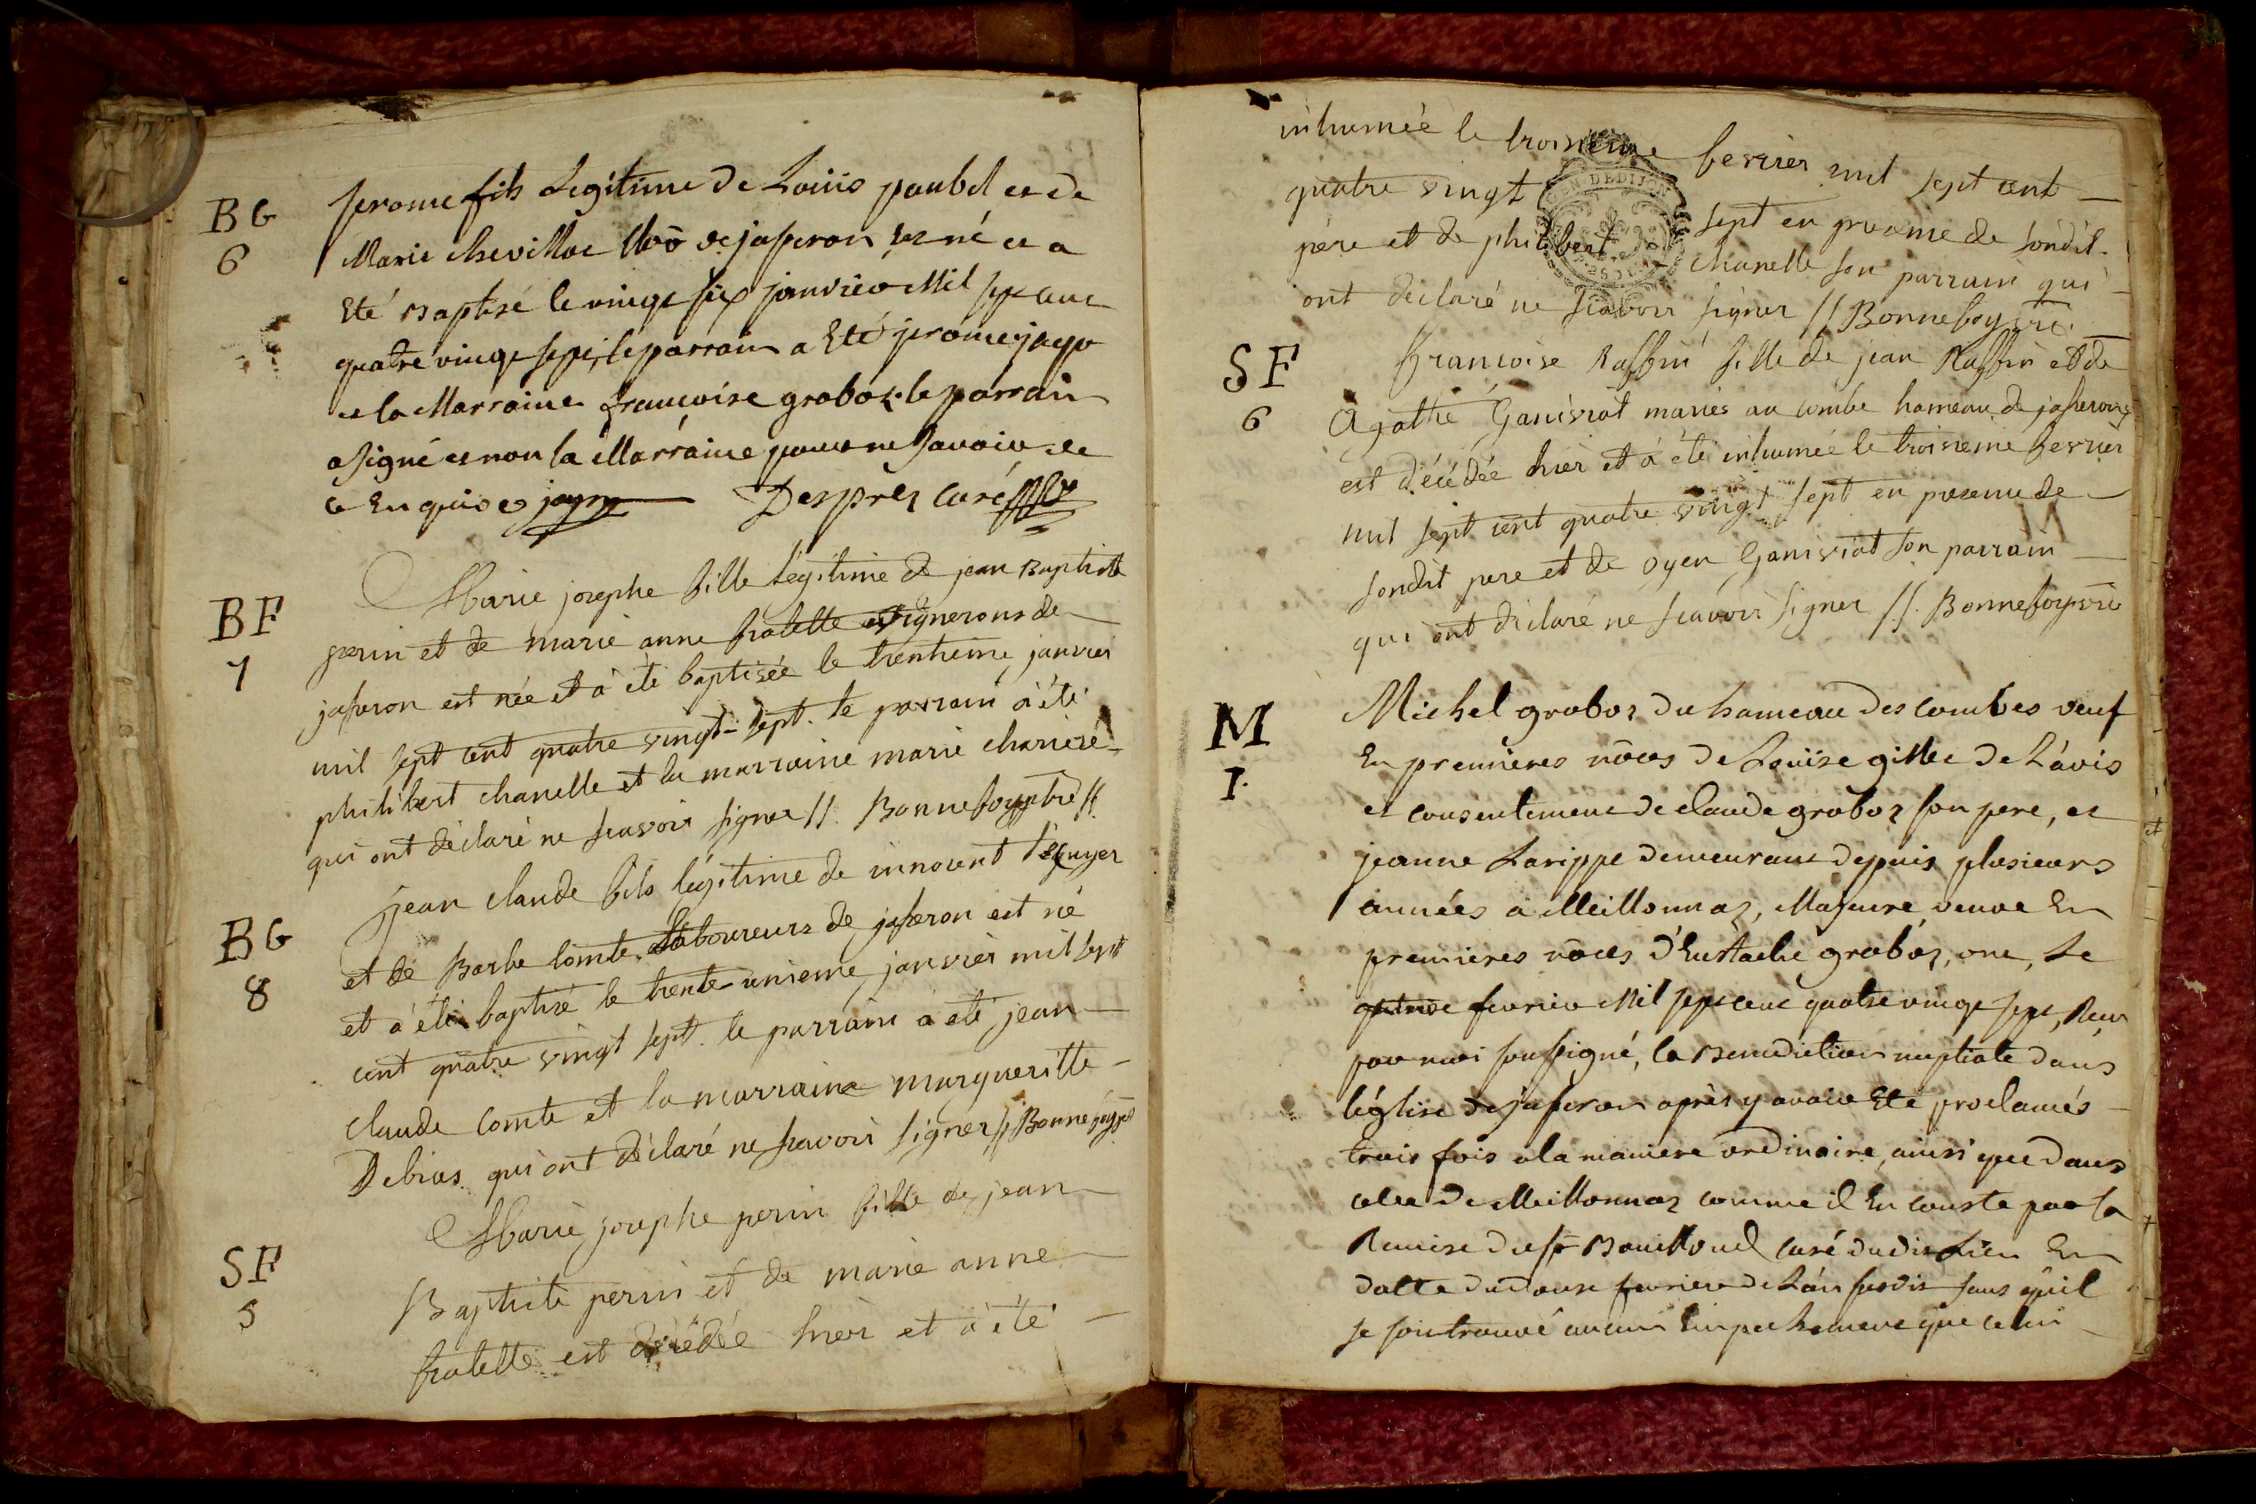 BG
6
jerome fils Legitime de Loüis paubel et de
Marie chevillac de jasseron est né et a
Eté Baptisé le vingt six janvier Mil sept cent
quatre vingt sept, le parrain a Eté jerome jayr
et la Marraine francoise groboz. le parrain
a signé et non la Marraine pour ne savoir de
ce Enquise jayr Desprez curé
BF
7
Marie josephe fille légitime de jean Baptiste
perin et de marie anne fralette vignerons de
jasseron est née et à été baptisée le trentieme janvier
mil sept cent quatre vingt-sept. le parrain à été
philibert chanelle et la marraine marie
qui ont déclaré ne scavoir signer //. Bonnefoy ptre //.
BG
8
jean claude fils légitime de innocent
et de Barbe comte laboureurs de jasseron est né
et à été baptisé le trente-unieme janvier mil sept
cent quatre vingt sept. le parrain a été jean
claude Comte et la marraine margueritte
Debias qui ont déclaré ne scavoir signer // Bonnefoy
SF
5
Marie josephe perin fille de jean
Baptiste perin et de marie anne
fralette est décédée hier et à été
inhumée le troisieme fevrier mil sept cent
quatre vingt sept en presence de sondit
père et de philibert chanelle son parrain qui
ont déclaré ne scavoir signer // Bonnefoy vre.
SF
6
francoise Raffin fille de jean Raffin et de
Agathe Ganiviat mariés au combe hameau de jasseron
est décédée hier et à été inhumée le troisieme fevrier
mil sept cent quatre vingt sept en presence de
sondit pere et de oyen Ganiviat son parrain
qui ont déclaré ne scavoir signer //. Bonnefoy vre
M
1.
Michel groboz du hameau des combes veuf
En premieres nôces de Loüise gillet de L'avis
et consentement de claude groboz son pere, et
jeanne Larippe demeurant depuis plusieurs
années a Meillonnaz, Majeure, veuve En
premieres nôces d'Eustache groboz, ont, Le
quinze fevrier Mil sept cent quatre vingt sept, Reçu
par moi soussigné, la Benediction nuptiale dans
léglise de jasseron après y avoir Eté proclamés
trois fois a la maniere ordinaire, ainsi que dans
celle de Meillonnaz comme il En conste par la
Remise du sr Bouilloud curé dudit Lieu En
datte du douze fevrier de L'an susdit sans qu'il
se soit trouvé aucun Empechement que celui